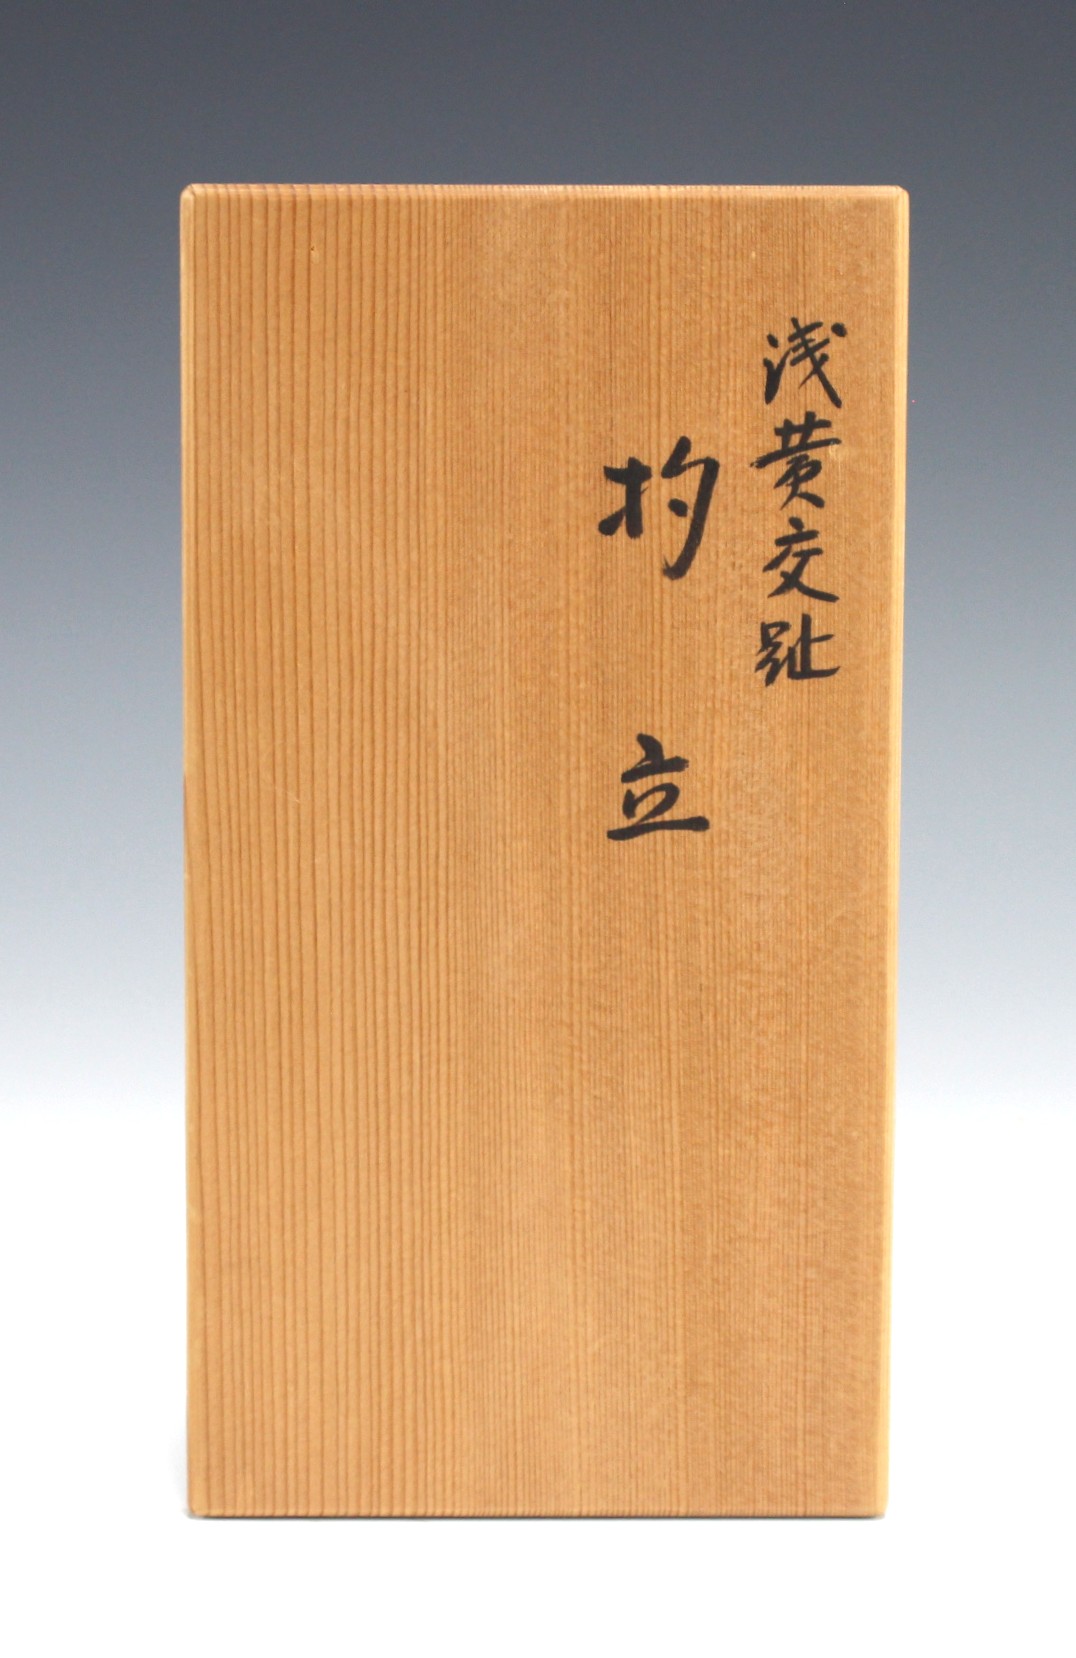 浅黄交趾
杓立